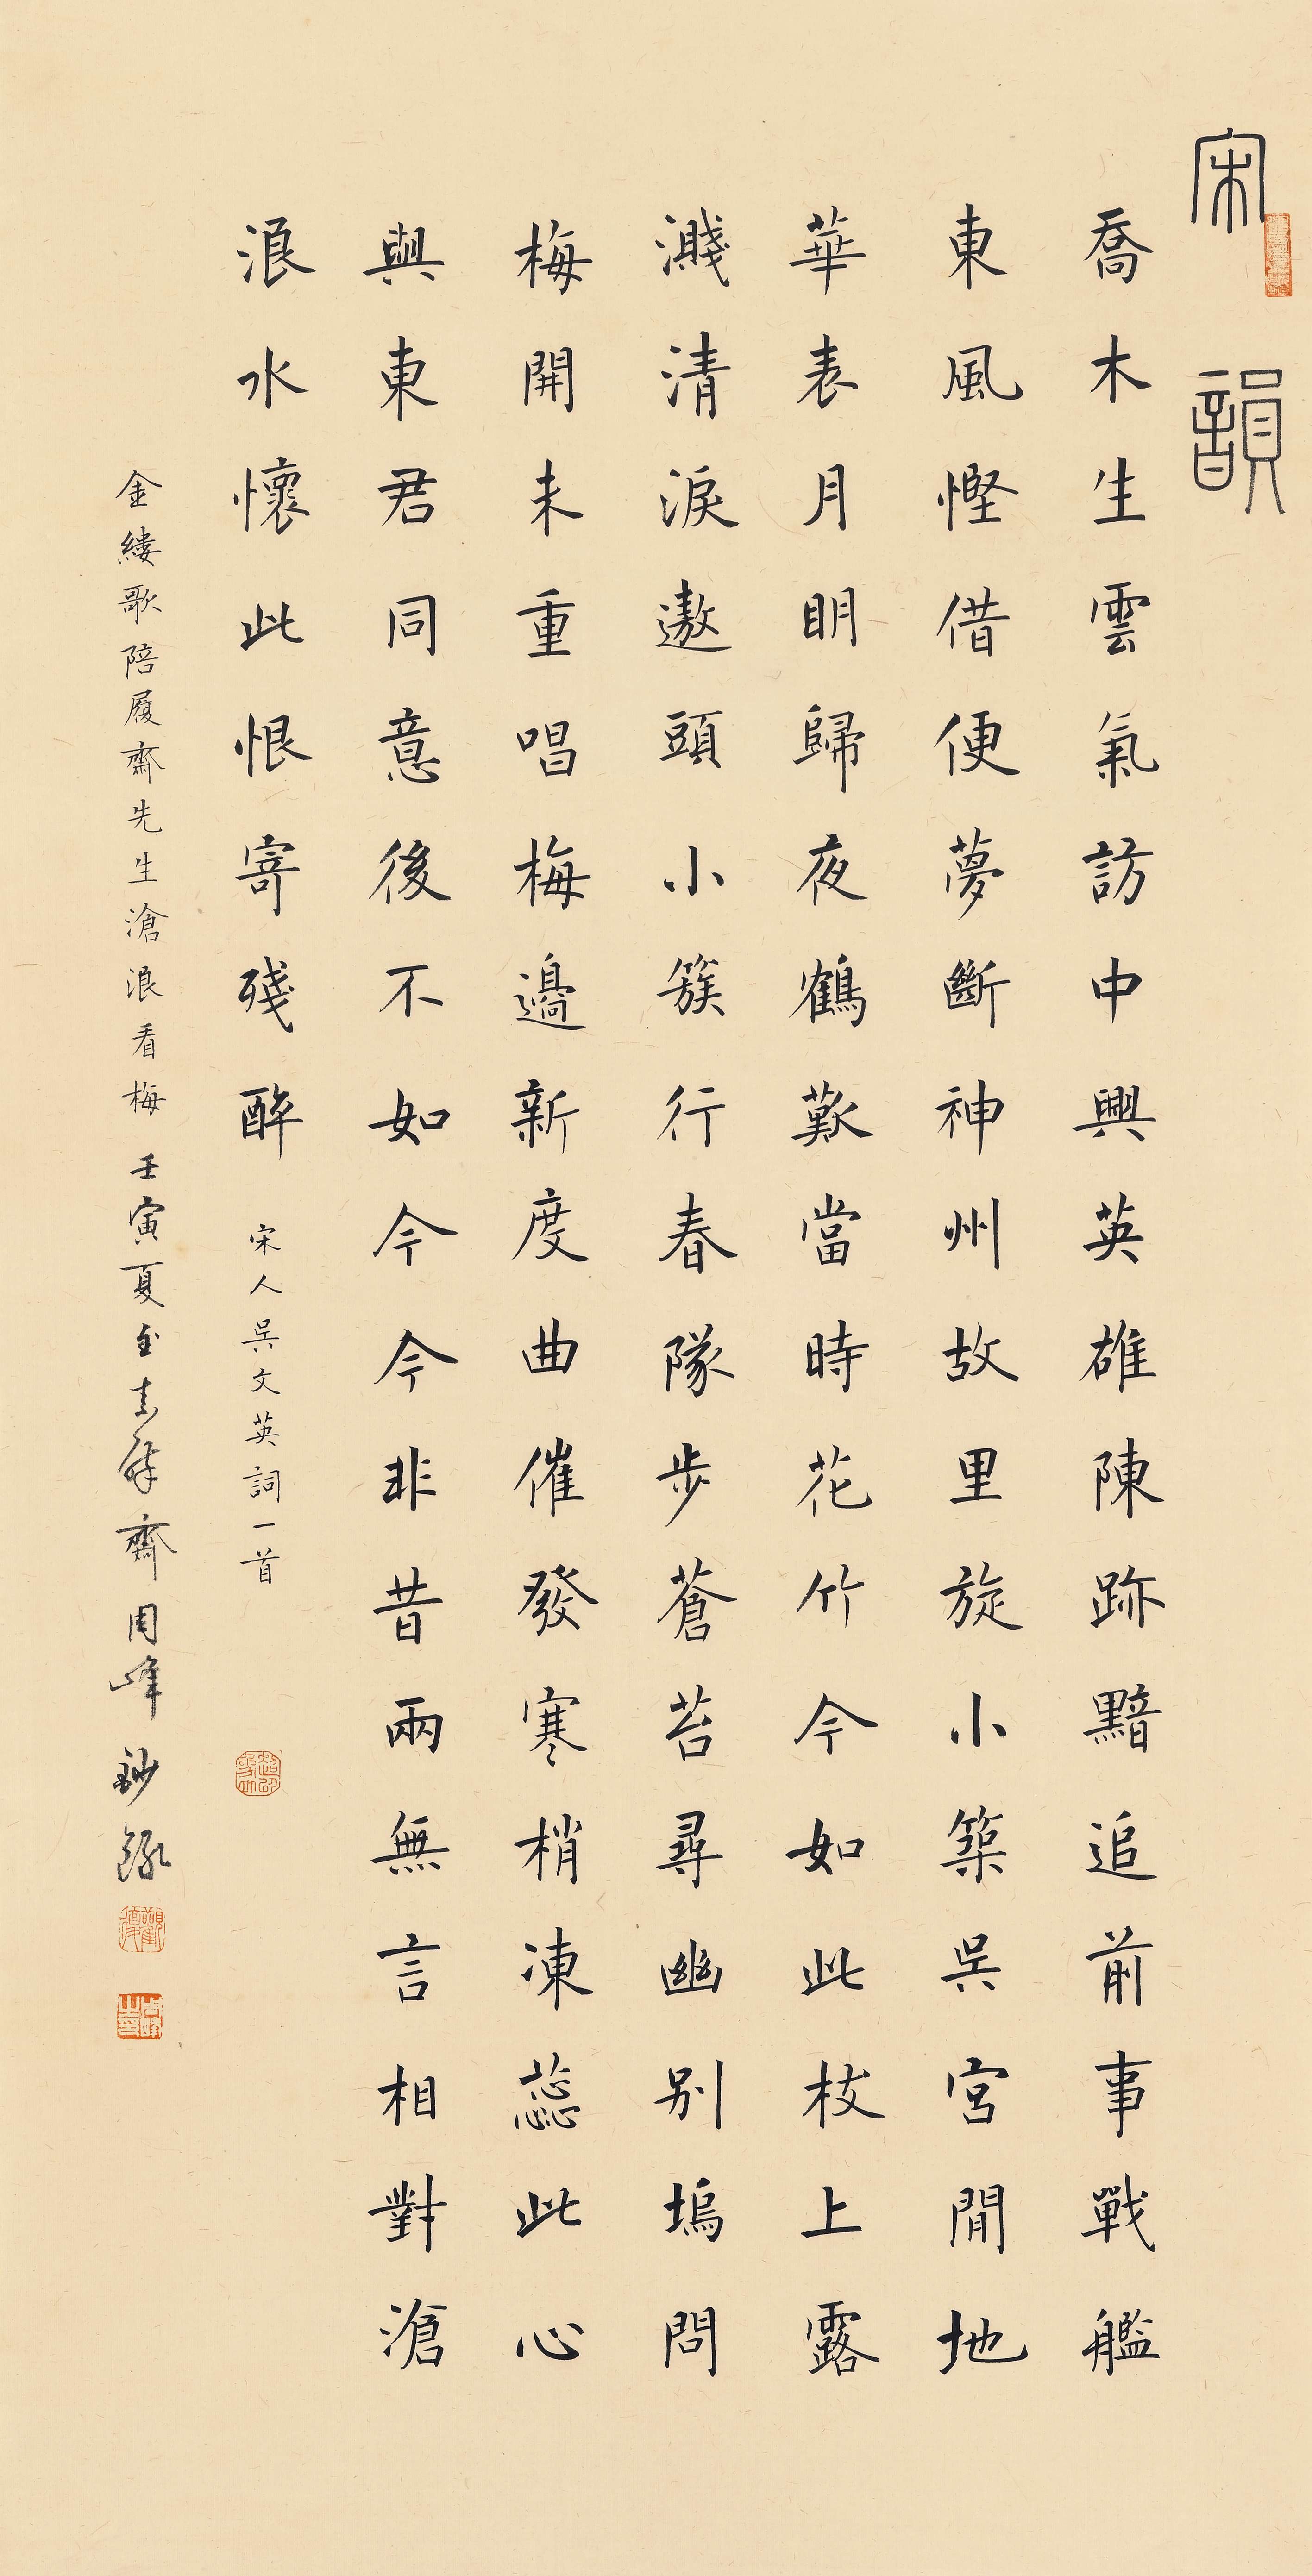 宋韻
喬木生雲氣訪中興英雄陳跡黯追前事戰艦
東風慳借便夢斷神州故里旋小築吳宮閒地
華表月明歸夜鶴歎當時花竹今如此枝上露
濺清淚遨頭小簇行春隊步蒼苔尋幽別塢問
梅開未重唱梅邊新度曲催發寒梢凍蕊此心
與東君同意後不如今今非昔兩無言相對滄
浪水懷此恨寄殘醉
宋人吳文英詞一首
金縷歌陪履齋先生滄浪看梅 壬寅夏至 齋周峰鈔錄